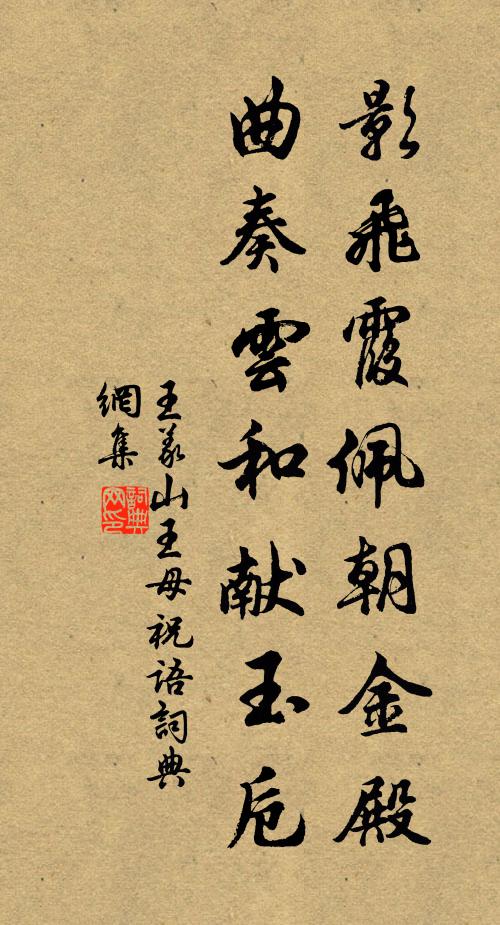 影飛霞佩朝金殿
曲奏雲和献玉卮
王義山王母祝語詞典
網集
詞典网印